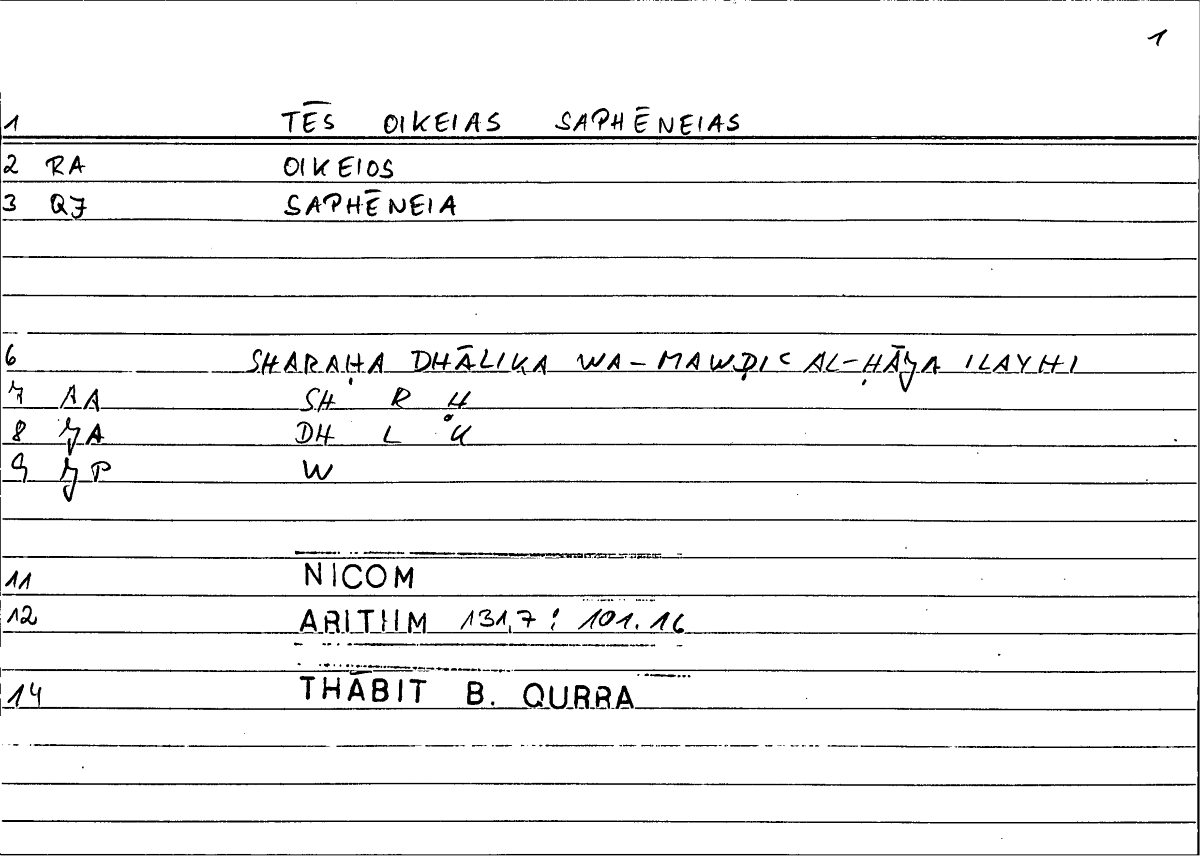 1
1 TĒS OIKEIAS SAPHĒNEIAS
2 RA OIKEIOS
3 QJ SAPHĒNEIA
6 SHARAḤA DHĀLIKA WA-MAWḌIʿ AL-ḤĀJA ILAYHI
7 AA SH R Ḥ
8 JA DH L K
9 JP W
11 NICOM
12 ARITHM 131,7 : 101.16
14 THĀBIT B. QURRA